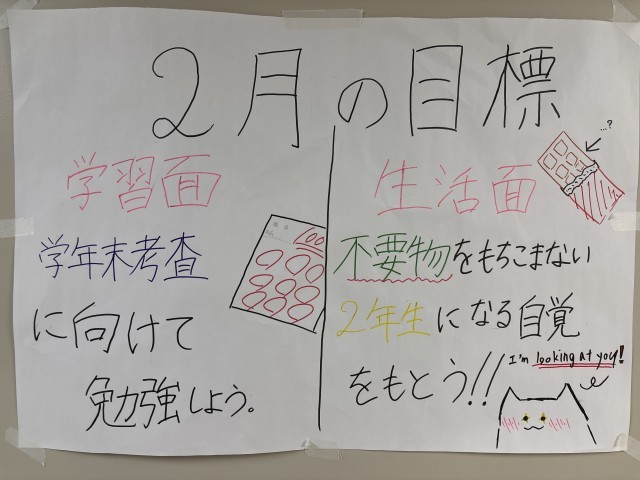 2月の目標
学習面
学年末考査
に向けて
勉強しよう。
100
生活面
...?
不要物をもちこまない
2年生になる自覚
をもとう!!
I'm looking at you!